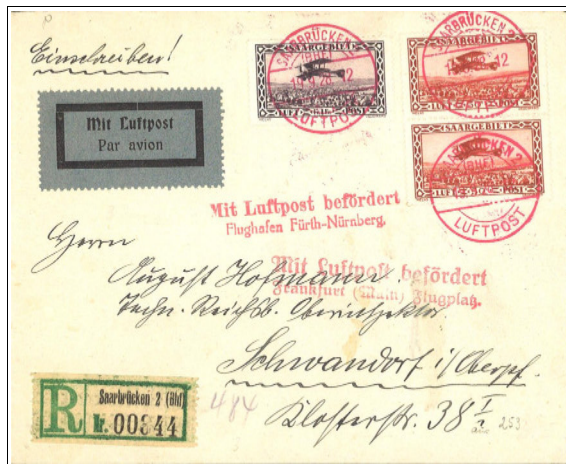 Einschreiben!
Mit Luftpost
Par avion
SAARGEBIET
LUFT POST
SAARGEBIET
LUFT POST
SAARGEBIET
LUFT POST
SAARBRÜCKEN 2
(BHF)
12
LUFTPOST
SAARBRÜCKEN 2
(BHF)
12
SAARBRÜCKEN 2
(BHF)
LUFTPOST
Mit Luftpost befördert
Flughafen Fürth-Nürnberg.
Mit Luftpost befördert
Frankfurt (Main) Flugplatz.
Herrn
August Hofmann
Techn. Reichsb. Oberinspektor
Schwandorf i/Oberpf.
Klosterstr. 38 I/2
R
Saarbrücken 2 (Bhf)
Nr. 00344
484
253